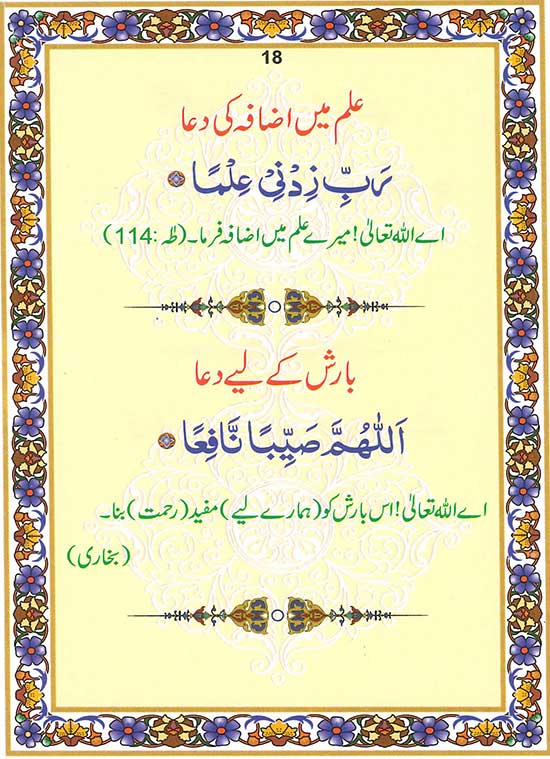 18
علم میں اضافہ کی دعا
رَبِّ زِدْنِیْ عِلْمًا
اے اللہ تعالیٰ! میرے علم میں اضافہ فرما۔ (طٰہٰ :114)
بارش کے لیے دعا
اَللّٰهُمَّ صَيِّبًا نَّافِعًا
اے اللہ تعالیٰ! اس بارش کو (ہمارے لیے) مفید (رحمت) بنا۔
(بخاری)